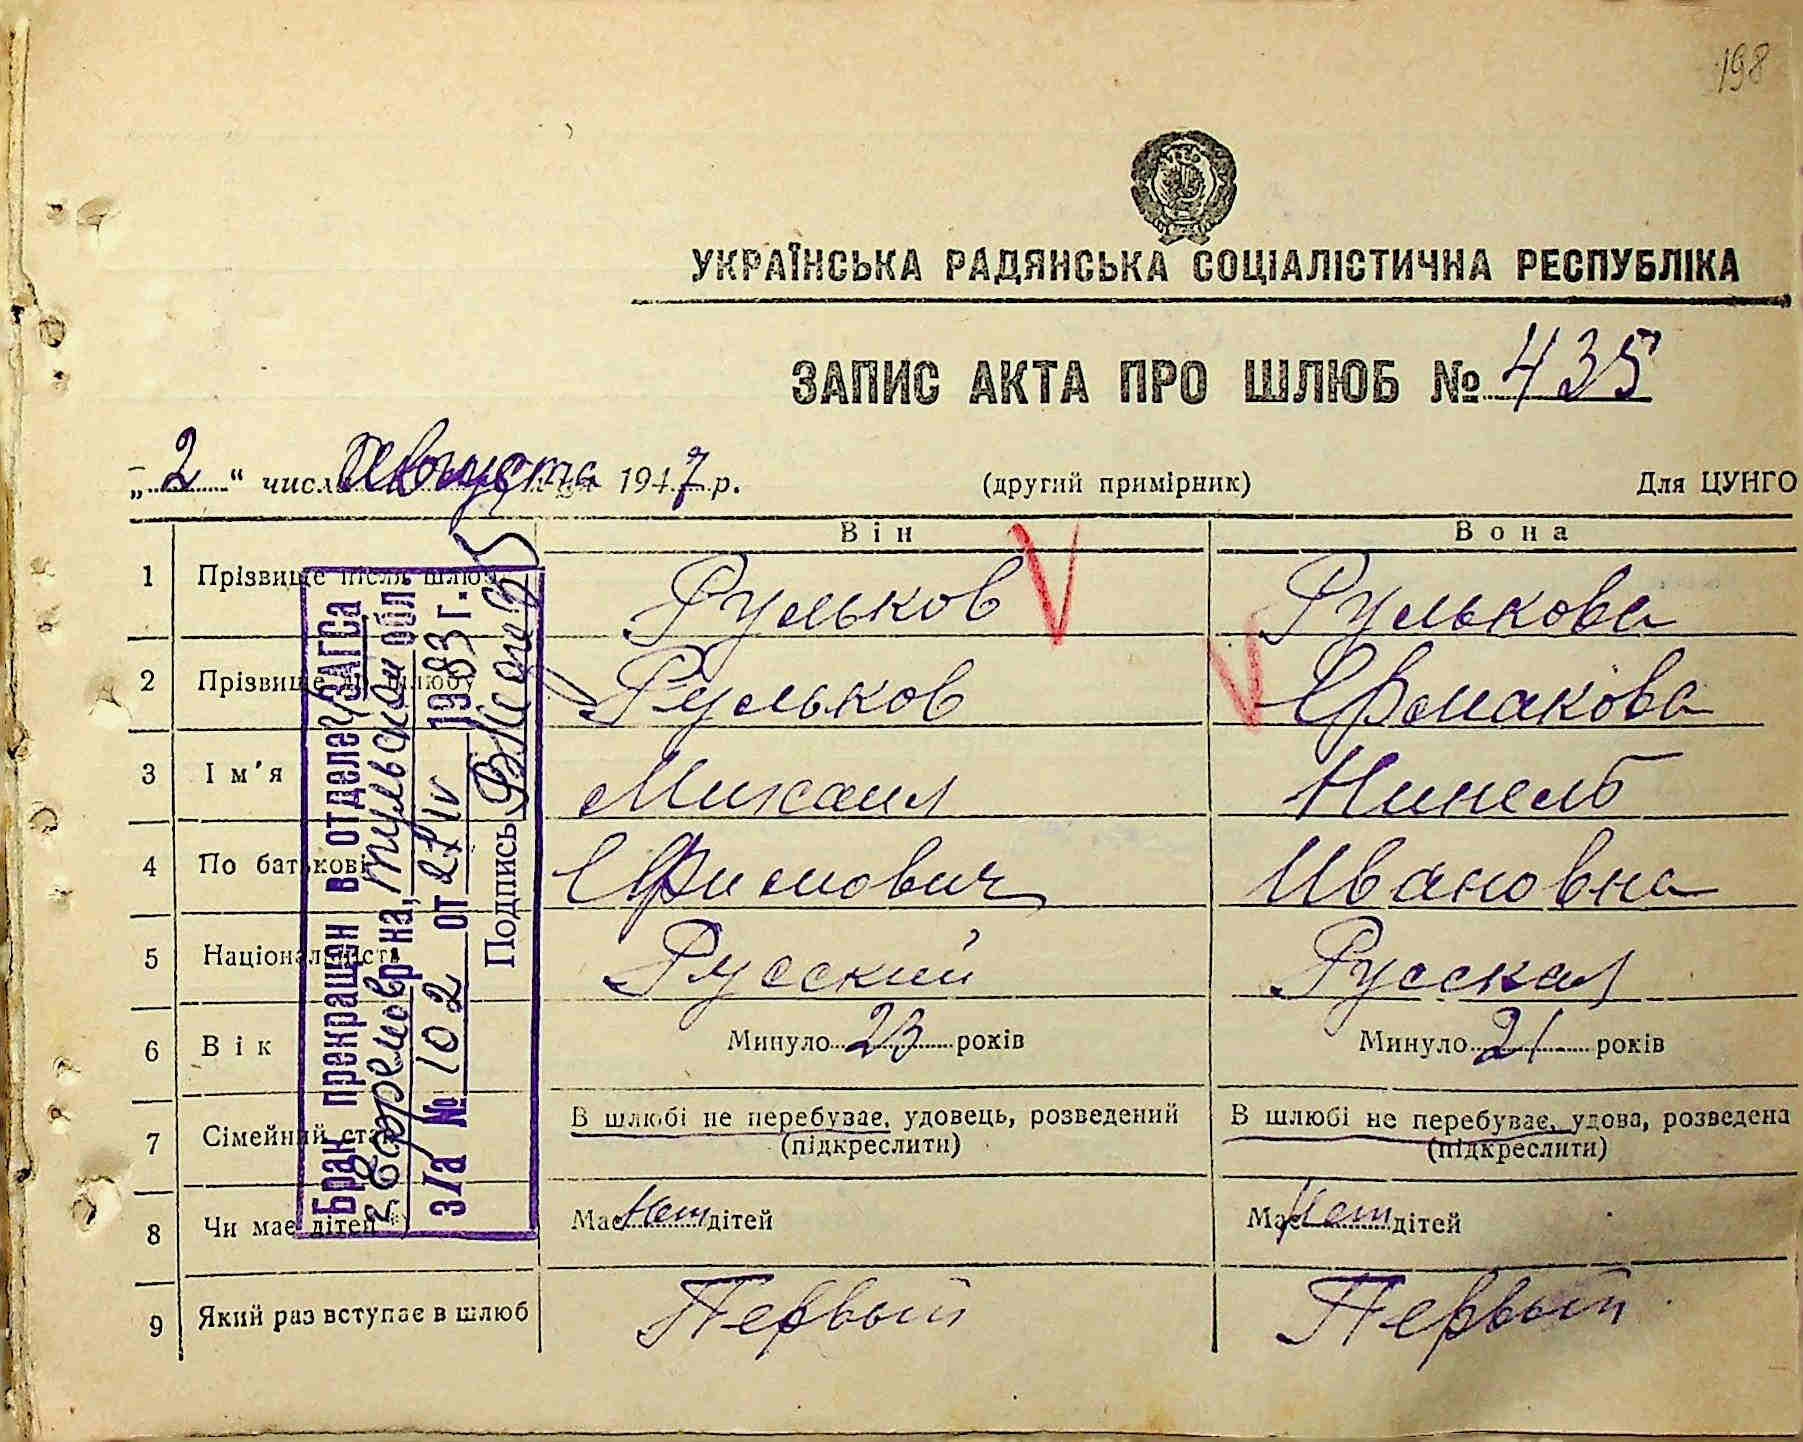 198
УКРАЇНСЬКА РАДЯНСЬКА СОЦІАЛІСТИЧНА РЕСПУБЛІКА
ЗАПИС АКТА ПРО ШЛЮБ № 435
„ 2 “ числа Августа 1947 р. (другий примірник) Для ЦУНГО
Він Вона
1 Прізвище після шлюбу Рульков Рулькова
2 Прізвище до шлюбу Рульков Ермакова
3 Ім'я Михаил Нинель
4 По батькові Ефимович Ивановна
5 Національність Русский Русская
6 Вік Минуло 23 років Минуло 21 років
7 Сімейний стан В шлюбі не перебуває, удовець, розведений В шлюбі не перебуває, удова, розведена
(підкреслити) (підкреслити)
8 Чи має дітей *) Має Нет дітей Має Нет дітей
9 Який раз вступає в шлюб Первый Первый
Брак прекращен в отделе ЗАГСа
г. Ефремов р-на, Тульской обл
з/а № 102 от 21 IV 1983 г.
Подпись